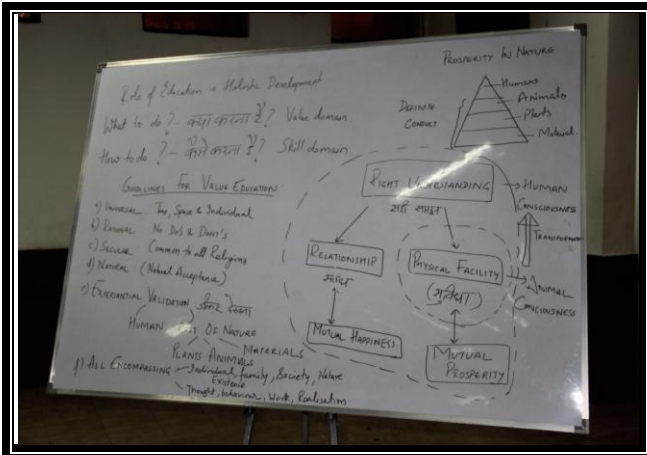 Role of Education in Holistic Development
What to do ? – क्या करना है ? Value domain
How to do ? – कैसे करना है ? Skill domain
GUIDELINES FOR VALUE EDUCATION
a) UNIVERSAL Time, Space & Individual
b) RATIONAL No Do's & Dont's
c) SECULAR Common to all Religions
d) NATURAL : (Natural Acceptance)
e) EXPERIENTIAL VALIDATION
HUMAN REST OF NATURE
PLANTS ANIMALS MATERIALS
f) ALL ENCOMPASSING
Individual, family, Society, Nature
Existence
Thought, behaviour, Work, Realisation
PROSPERITY IN NATURE
Humans
Animals
Plants
Material
DEFINITE
CONDUCT
RIGHT UNDERSTANDING
सही समझ
HUMAN
CONSCIOUSNESS
TRANSFORMATION
RELATIONSHIP
संबंध
PHYSICAL FACILITY
(सुविधा)
ANIMAL
CONCIOUSNESS
MUTUAL HAPPINESS
MUTUAL
PROSPERITY